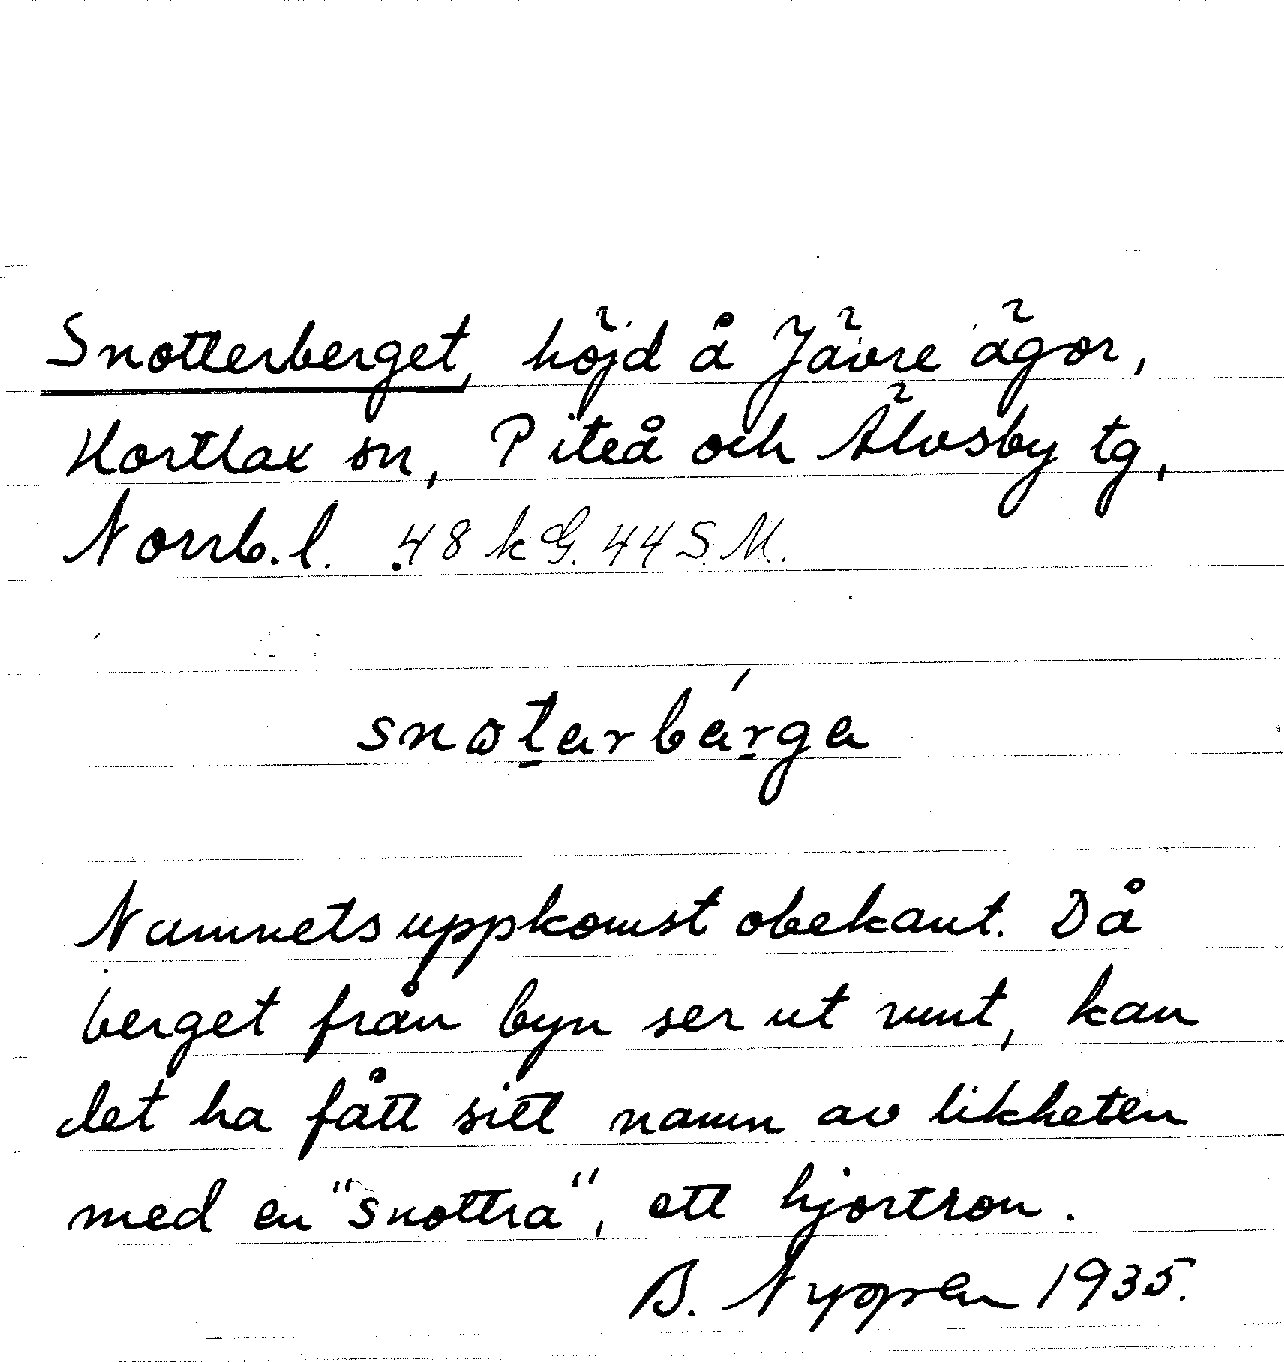 Snotterberget, höjd å Jävre ägor,
Hortlax sn, Piteå och Älvsby tg,
Norrb.l. 48 kG. 44 S.M.
snɷt̠arbá̠rga
Namnets uppkomst obekant. Då
berget från byn ser ut runt, kan
det ha fått sitt namn av likheten
med en "snottra", ett hjortron.
B. Nygren 1935.